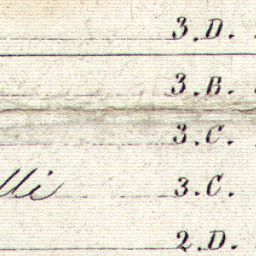 3.D.
3.B.
3.C.
lli 3.C.
2.D.